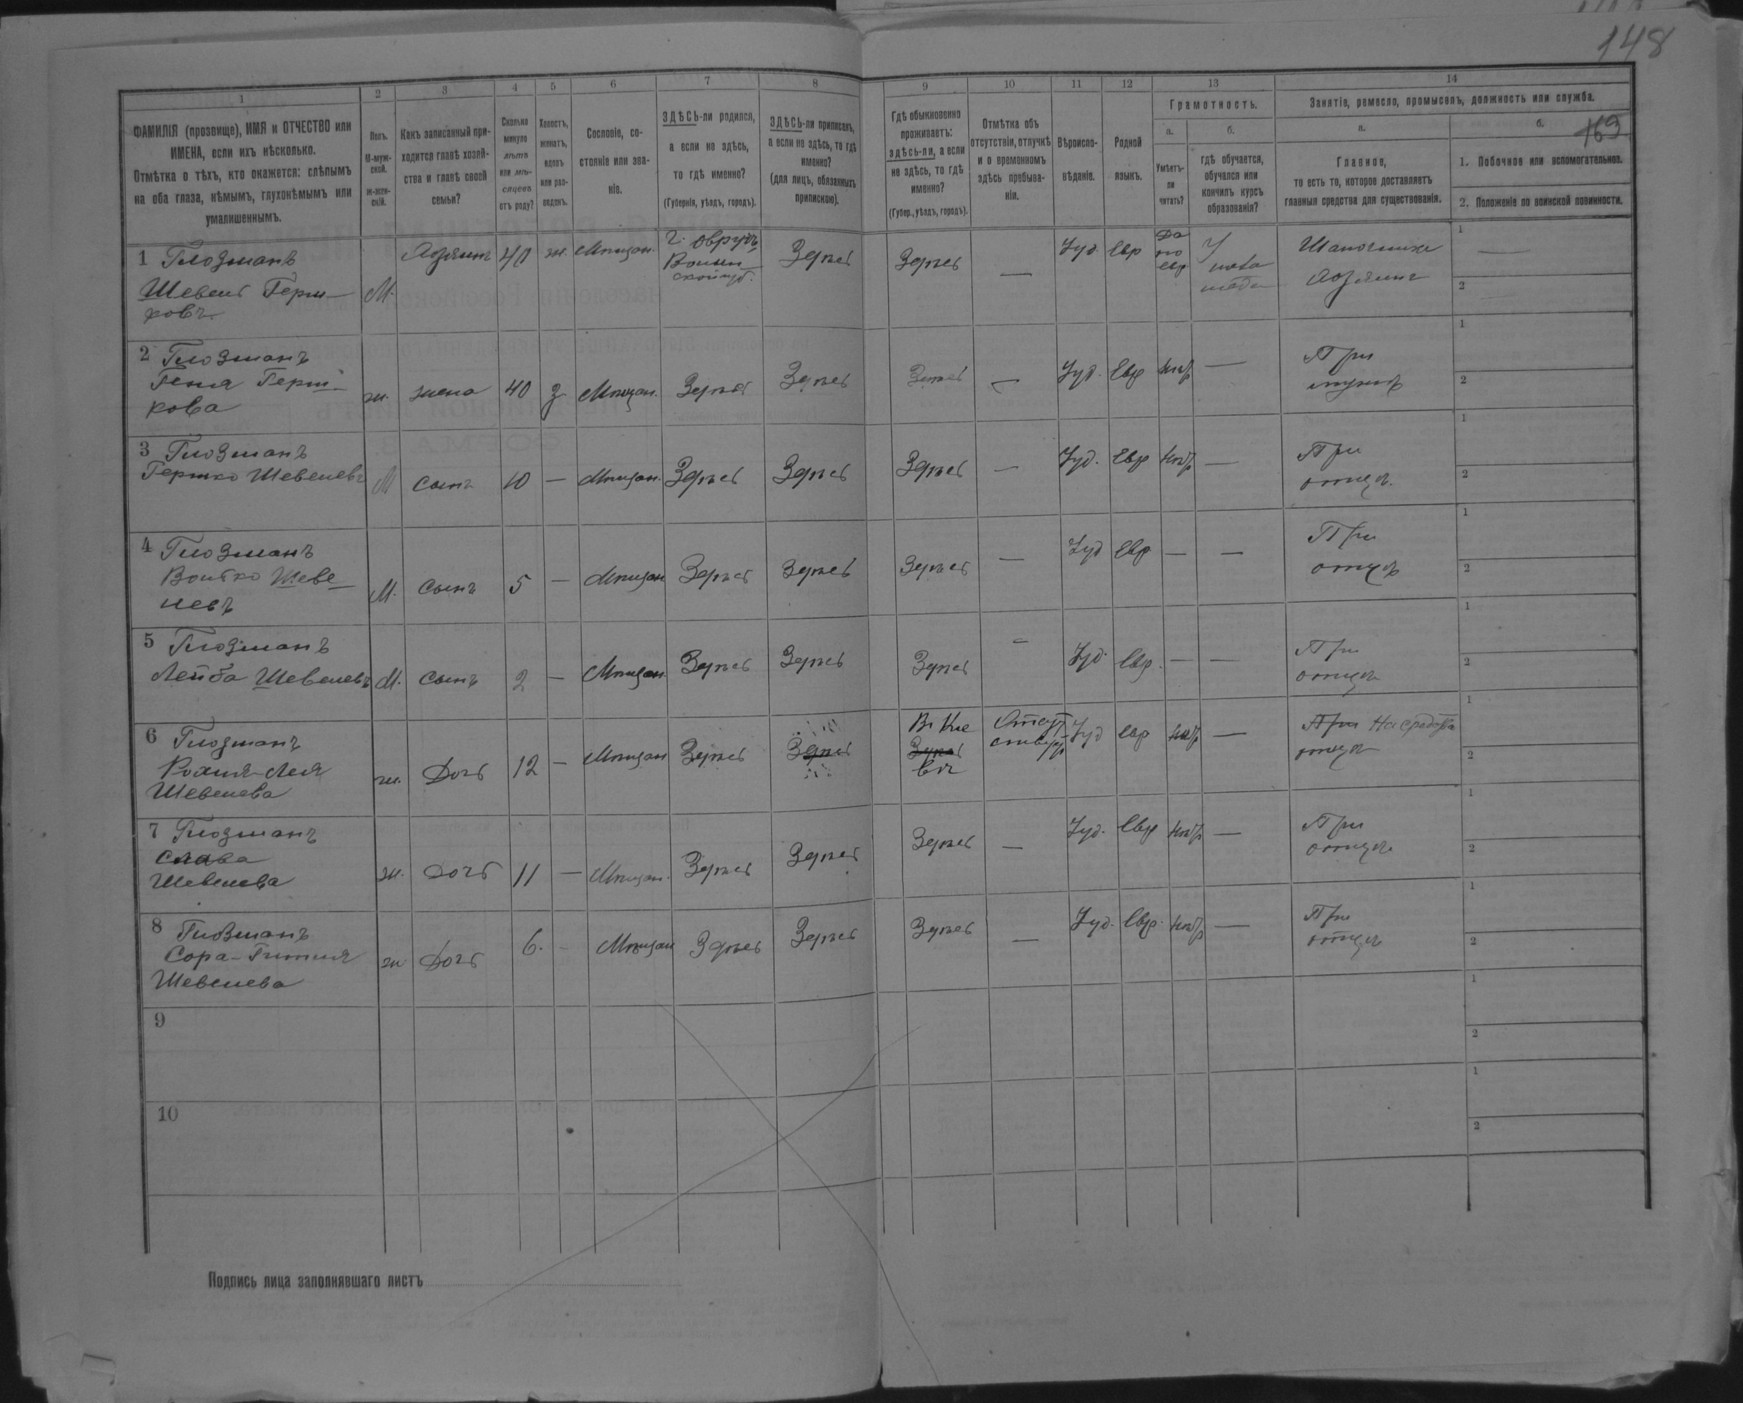 148
169
1
2
3
4
5
6
7
8
9
10
11
12
13
14
ФАМИЛІЯ (прозвище), ИМЯ и ОТЧЕСТВО или
ИМЕНА, если ихъ нѣсколько.
Отмѣтка о тѣхъ, кто окажется: слѣпымъ
на оба глаза, нѣмымъ, глухонѣмымъ или
умалишеннымъ.
Полъ.
М-муж-
ской.
Ж-жен-
скій.
Какъ записанный при-
ходится главѣ хозяй-
ства и главѣ своей
семьи?
Сколько
минуло
лѣтъ
или мѣ-
сяцевъ
отъ роду?
Холостъ,
женатъ,
вдовъ
или раз-
веденъ.
Сословіе, со-
стояніе или зва-
ніе.
ЗДѢСЬ-ли родился,
а если не здѣсь,
то гдѣ именно?
(Губернія, уѣздъ, городъ).
ЗДѢСЬ-ли приписанъ,
а если не здѣсь, то гдѣ
именно?
(для лицъ, обязанныхъ
припискою).
Гдѣ обыкновенно
проживаетъ:
здѣсь-ли, а если
не здѣсь, то гдѣ
именно?
(Губер., уѣздъ, городъ).
Отмѣтка объ
отсутствіи, отлучкѣ
и о временномъ
здѣсь пребыва-
ніи.
Вѣроиспо-
вѣданіе.
Родной
языкъ.
Грамотность.
а.
Умѣетъ-
ли
читать?
б.
гдѣ обучается,
обучался или
кончилъ курсъ
образованія?
Занятіе, ремесло, промыселъ, должность или служба.
а.
Главное,
то есть то, которое доставляетъ
главныя средства для существованія.
б.
1. Побочное или вспомогательное.
2. Положеніе по воинской повинности.
1 Глозманъ
Шевель Герш-
ковъ
М.
Хозяинъ
40
ж.
Мѣщан.
г. Овручъ
Волын-
ской губ.
Здѣсь
Здѣсь
—
Іуд.
Евр
Да
по
евр
У
Шапочникъ
Хозяинъ
1 —
2
2 Глозманъ
Геня Герш-
кова
ж.
жена
40
з
Мѣщан.
Здѣсь
Здѣсь
Здѣсь
—
Іуд.
Евр
нѣтъ
—
При
мужѣ
1
2
3 Глозманъ
Гершко Шевелевъ
М
сынъ
10
—
Мѣщан.
Здѣсь
Здѣсь
Здѣсь
—
Іуд.
Евр
нѣтъ
—
При
отцѣ
1
2
4 Глозманъ
Волько Шеве-
левъ
М.
сынъ
5
—
Мѣщан
Здѣсь
Здѣсь
Здѣсь
—
Іуд
Евр
—
—
При
отцѣ
1
2
5 Глозманъ
Лейба Шевелевъ
М.
сынъ
2
—
Мѣщан.
Здѣсь
Здѣсь
Здѣсь
—
Іуд.
Евр.
—
—
При
отцѣ
1
2
6 Глозманъ
Рохля-Лея
Шевелева
ж.
Дочь
12
—
Мѣщан
Здѣсь
Здѣсь
Въ Кіе
Здѣсь
вѣ
Отсут
ствуетъ
Іуд
Евр
нѣтъ
—
При
отцѣ
1
2
7 Глозманъ
Слава
Шевелева
ж.
Дочь
11
—
Мѣщан.
Здѣсь
Здѣсь
Здѣсь
—
Іуд.
Евр
нѣтъ
—
При
отцѣ
1
2
8 Глозманъ
Сора-Гитля
Шевелева
ж
Дочь
6.
-
Мѣщан
Здѣсь
Здѣсь
Здѣсь
—
Іуд.
Евр.
нѣтъ
—
При
отцѣ
1
2
9
1
2
10
1
2
Подпись лица заполнявшаго листъ